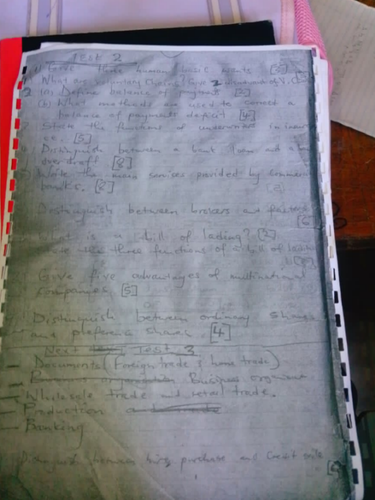 TEST 2
State three human basic wants [3]
What are voluntary chains? Give 2 of V.C
(a) Define balance of payment [2]
(b) What methods are used to correct a
balance of payments deficit [4]
State the functions of in
[5]
Distinguish between a bank loan and
overdraft [6]
Write the main services provided by
banks. [6]
Distinguish between brokers and factors
[6]
is a bill of lading? [2]
three functions of a bill of
Give five advantages of multinational
companies. [5]
Distinguish between ordinary shares
and preference shares. [4]
Next Test 3
- Documents (Foreign trade & home trade)
- Business
- Wholesale trade and retail trade.
- Production
- Banking
between hire purchase and credit sale